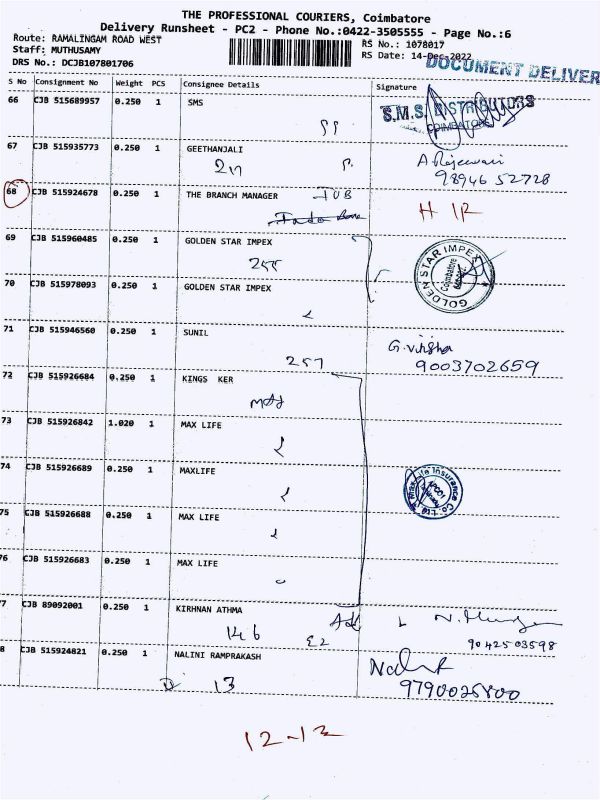 THE PROFESSIONAL COURIERS, Coimbatore
Delivery Runsheet - PC2 - Phone No.:0422-3505555 - Page No.:6
Route: RAMALINGAM ROAD WEST
Staff: MUTHUSAMY
DRS No.: DCJB107801706
RS No.: 1078017
RS Date: 14-Dec-2022
DOCUMENT DELIVER
S No Consignment No Weight PCS Consignee Details Signature
66 CJB 515689957 0.250 1 SMS
S.M.S. DISTRIBUTORS
COIMBATORE
67 CJB 515935773 0.250 1 GEETHANJALI
A. Rajeswari
98946 52728
68 CJB 515924678 0.250 1 THE BRANCH MANAGER IOB
69 CJB 515960485 0.250 1 GOLDEN STAR IMPEX
255
GOLDEN STAR IMPEX
Coimbatore
70 CJB 515978093 0.250 1 GOLDEN STAR IMPEX
71 CJB 515946560 0.250 1 SUNIL
257
9003702659
72 CJB 515926684 0.250 1 KINGS KER
73 CJB 515926842 1.020 1 MAX LIFE
74 CJB 515926689 0.250 1 MAXLIFE
Max Life Insurance Co. Ltd
75 CJB 515926688 0.250 1 MAX LIFE
76 CJB 515926683 0.250 1 MAX LIFE
7 CJB 89092001 0.250 1 KIRHNAN ATHMA
146
E2
9042503598
8 CJB 515924821 0.250 1 NALINI RAMPRAKASH
D 13
9790025800
12-12